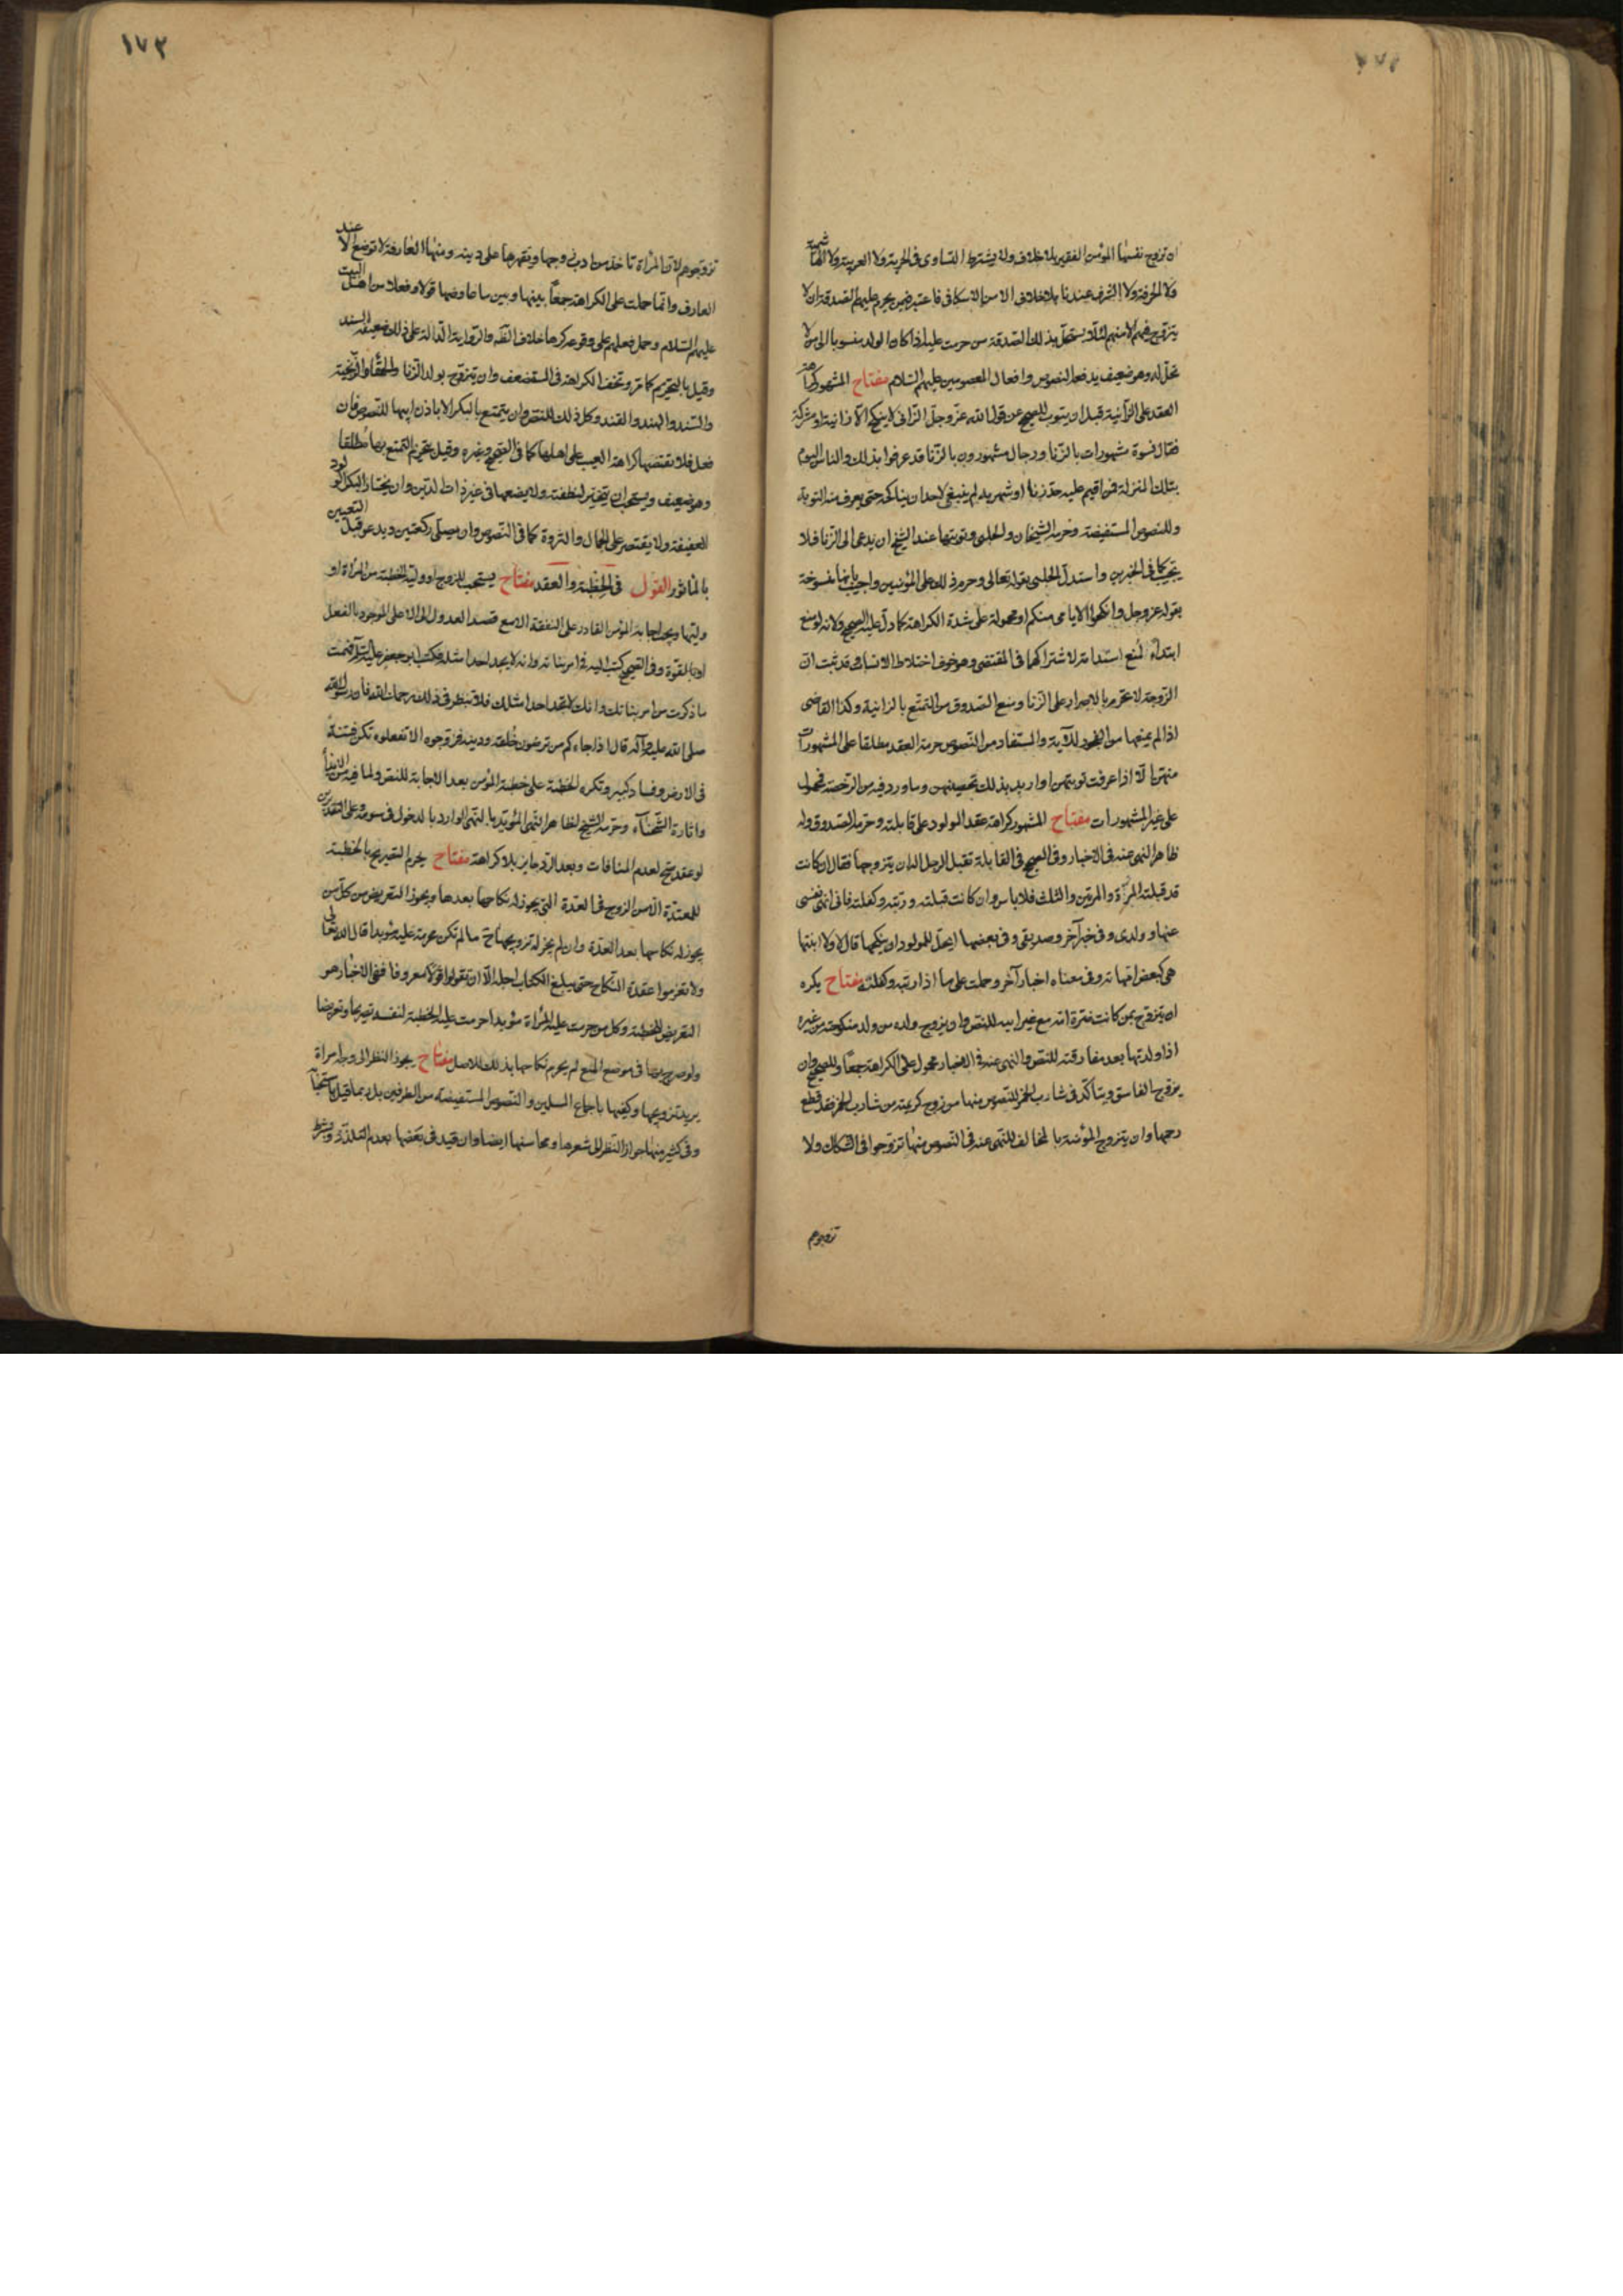 ان تزوج نفسها المؤمن الفقير بلا خلاف ولا يشترط التساوى فى الحرية ولا العربية ولا الهاشمية
ولا الحرفة ولا الشرف عندنا بلا خلاف الا من الاسكافى فاعتبر فيمن يحرم عليهم الصدقة ان لا
يتزوج فيهم الا منهم لئلا يستحل بذلك الصدقة من حرمت عليه اذا كان الولد منسوبا الى من لا
تحل له وهو ضعيف يدفعه النصوص وافعال المعصومين عليهم السلام مفتاح المشهور كراهة
العقد على الزانية قبل ان يتوب للصحيح عن قول الله عز وجل الزانى لا ينكح الا زانية او مشركة
فقال نسوة مشهورات بالزنا ورجال مشهورون بالزنا قد عرفوا بذلك والناس اليوم
بتلك المنزلة فمن اقيم عليه حد زنا او شهر به لم ينبغى لاحد ان يناكحه حتى يعرف منه التوبة
وللنصوص المستفيضة وحرمه الشيخان والحلبى وتوبتها عند الشيخ ان يدعى الى الزنا فلا
يجيب كما فى الخبرين واستدل الحلبى بقوله تعالى وحرم ذلك على المؤمنين واجيب بانها منسوخة
بقوله عز وجل وانكحوا الايامى منكم او محمولة على شدة الكراهة كما دل عليه الصحيح ولانه لو منع
ابتداء لمنع استدامة لاشتراكهما فى المقتضى وهو خوف اختلاط الانساب وقد ثبت ان
الزوجة لا تحرم بالاصرار على الزنا ومنع الصدوق من التمتع بالزانية وكذا القاضى
اذا لم يمنعها من الفجور للآية والمستفاد من النصوص حرمة العقد مطلقا على المشهورات
منهن الا اذا عرفت توبتهن او اريد بذلك تحصينهن وما ورد فيه من الرخصة فمحمول
على غير المشهورات مفتاح المشهور كراهة عقد المولود على قابلته وحرمه الصدوق وله
ظاهر النهى عنه فى الاخبار وفى الصحيح فى القابلة تقبل الرجل اله ان يتزوجها فقال ان كانت
قد قبلته المرة والمرتين والثلث فلا باس وان كانت قبلته وربته وكفلته فانى انهى نفسى
عنها وولدى وفى خبر آخر وصديقى وفى بعضها ايحل للمولود ان ينكحها قال لا ولا ابنتها
هى كبعض امهاته وفى معناه اخبار آخر وحملت على ما اذا ربته وكفلته مفتاح يكره
ان يتزوج بمن كانت ضرة امه مع غير ابيه للنص وان يزوج ولده من ولد منكوحته من غيره
اذا ولدتها بعد مفارقته للنص والنهى عنه فى الاخبار محمول على الكراهة جمعا وللصحيح وان
يزوج الفاسق ويتاكد فى شارب الخمر للنصوص منها من زوج كريمته من شارب الخمر فقد قطع
رحمها وان يتزوج المؤمنة بالمخالف للنهى عنه فى النصوص منها تزوجوا فى الشكاك ولا
تزوجوهم
١٧٢
تزوجوهم لان المرأة تاخذ من ادب زوجها ويقهرها على دينه ومنها العارفة لا توضع الا عند
العارف وانما حملت على الكراهة جمعا بينها وبين ما عارضها قولا وفعلا من اهل البيت
عليهم السلام وحمل فعلهم على وقوعه كرها خلاف الثقه والرواية الدالة على ذلك ضعيفة السند
وقيل بالتحريم كما مر وتخف الكراهة فى المستضعف وان يتزوج بولد الزنا والحمقاء والزنجية
والسند والهند والقند وكل ذلك للنص وان يتمتع بالبكر الا باذن ابيها للنصوص فان
فعل فلا يقتضها كراهة العيب على اهلها كما فى الصحيح وغيره وقيل بتحريم التمتع بها مطلقا
وهو ضعيف ويستحب ان يتخير لنطفته ولا يضعها فى غير ذات الدين وان يختار البكر الولود
العفيفة ولا يقتصر على الجمال والثروة كما فى النصوص وان يصلى ركعتين ويدعو قبل التعيين
بالماثور القول فى الخطبة والعقد مفتاح يستحب للزوج او وليه الخطبة من المرأة او
وليها ويجب اجابة المؤمن القادر على النفقة الا مع قصد العدول الى الاعلى الموجود بالفعل
او بالقوة وفى الصحيح كتب اليه فى امر بناته وانه لا يجد احدا مثله فكتب ابو جعفر عليه السلام فهمت
ما ذكرت من امر بناتك وانك لا تجد احدا مثلك فلا تنظر فى ذلك رحمك الله فان رسول الله
صلى الله عليه وآله قال اذا جاءكم من ترضون خلقه ودينه فزوجوه الا تفعلوه تكن فتنة
فى الارض وفساد كبير وتكره الخطبة على خطبة المؤمن بعد الاجابة للنص ولما فيه من الايذاء
واثارة الشحناء وحرمه الشيخ لظاهر النهى المؤيد بالنهى الوارد بالدخول فى سومه وعلى التقديرين
لو عقد صح لعدم المنافات وبعد الرد جايز بلا كراهة مفتاح يحرم التصريح بالخطبة
للمعتدة الا من الزوج فى العدة التى يجوز له نكاحها بعدها ويجوز التعريض من كل من
يجوز له نكاحها بعد العدة وان لم يجز له تزويجها ح ما لم تكن محرمة عليه مؤبدا قال الله تعالى
ولا تعزموا عقدة النكاح حتى يبلغ الكتاب اجله الا ان تقولوا قولا معروفا ففى الاخبار هو
التعريض للخطبة وكل من حرمت عليه المرأة مؤبدا حرمت عليه الخطبة لنفسه تصريحا وتعريضا
ولو صرح بها فى موضع المنع لم يحرم نكاحها بذلك للاصل مفتاح يجوز النظر الى وجه امرأة
يريد تزويجها وكفيها باجماع المسلمين والنصوص المستفيضة من الطرفين بل ربما قيل باستحبابه
وفى كثير منها جواز النظر الى شعرها ومحاسنها ايضا وان قيد فى بعضها بعدم التلذذ ويشترط